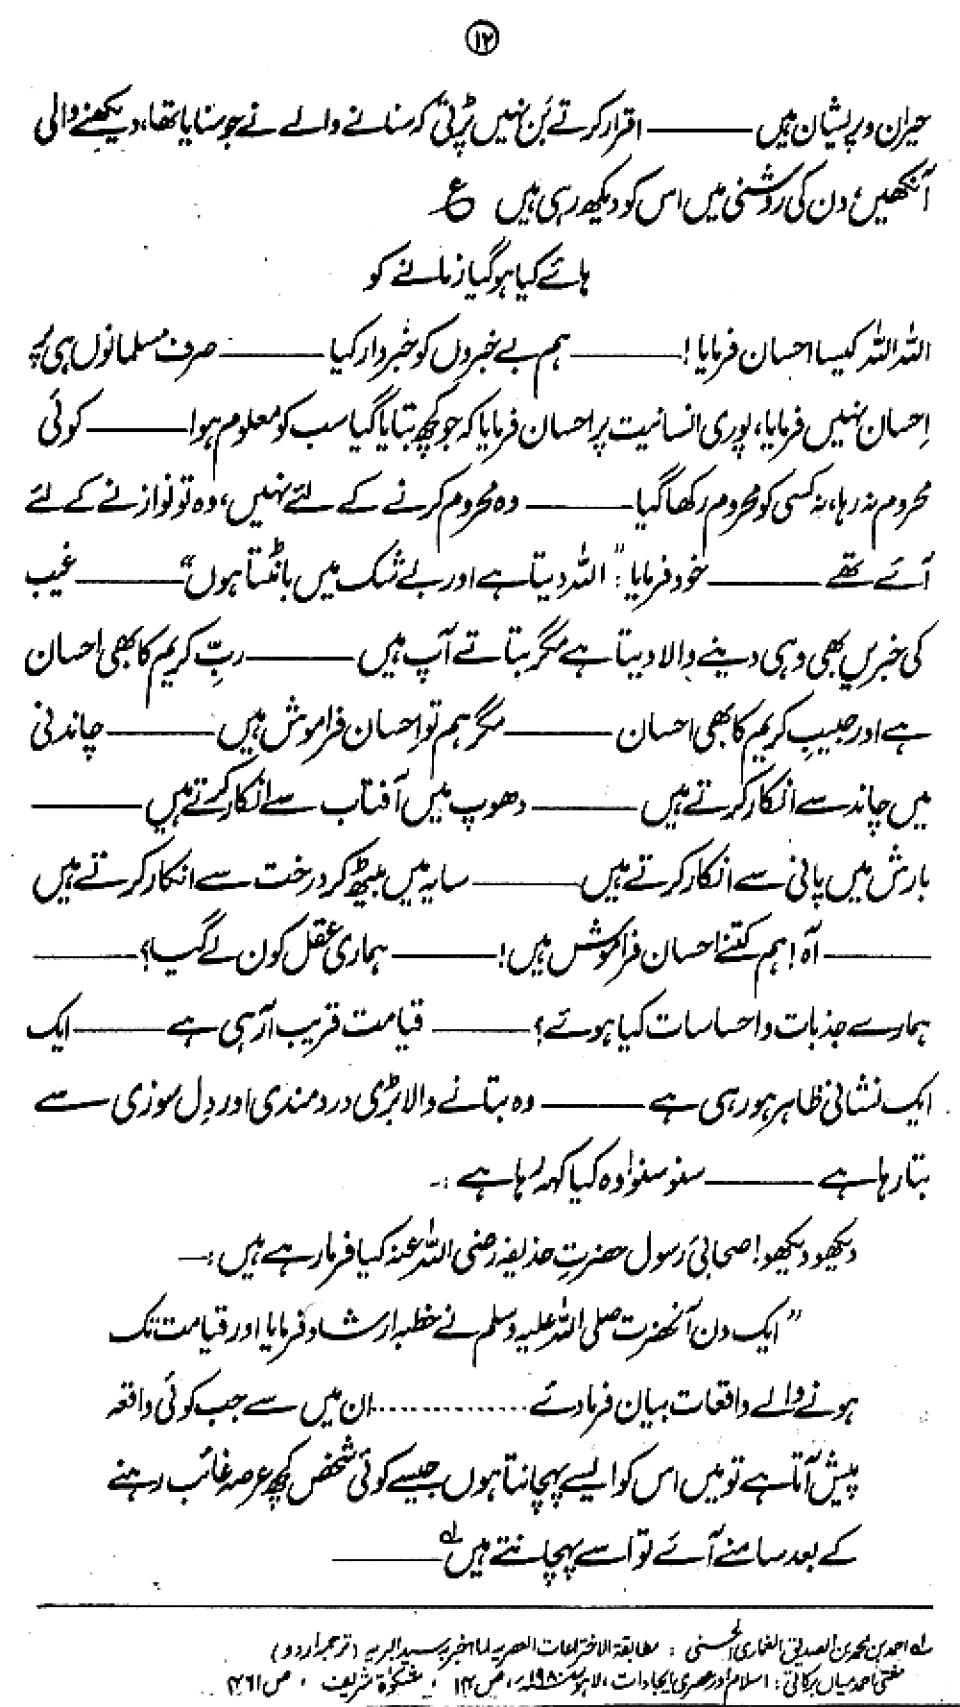 ۱۲
حیران و پریشان ہیں ——— اقرار کرتے بَن نہیں پڑتی کہ سنانے والے نے جو سنایا تھا، دیکھنے والی
آنکھیں، دن کی روشنی میں اس کو دیکھ رہی ہیں ع
ہائے کیا ہو گیا زمانے کو
اللہ اللہ کیسا احسان فرمایا! ——— ہم بے خبروں کو خبردار کیا ——— صرف مسلمانوں ہی پر
اِحسان نہیں فرمایا، پوری انسانیت پر احسان فرمایا کہ جو کچھ بتایا گیا سب کو معلوم ہوا ——— کوئی
محروم نہ رہا، نہ کسی کو محروم رکھا گیا ——— وہ محروم کرنے کے لئے نہیں، وہ تو نوازنے کے لئے
آئے تھے ——— خود فرمایا: "اللہ دیتا ہے اور بے شک میں بانٹتا ہوں" ——— غیب
کی خبریں بھی وہی دینے والا دیتا ہے مگر بتاتے آپ ہیں ——— ربِّ کریم کا بھی احسان
ہے اور حبیبِ کریم کا بھی احسان ——— مگر ہم تو اِحسان فراموش ہیں ——— چاندنی
میں چاند سے انکار کرتے ہیں ——— دھوپ میں آفتاب سے انکار کرتے ہیں ———
بارش میں پانی سے انکار کرتے ہیں ——— سایہ میں بیٹھ کر درخت سے انکار کرتے ہیں
——— آہ! ہم کتنے احسان فراموش ہیں! ——— ہماری عقل کون لے گیا؟ ———
ہمارے جذبات و احساسات کیا ہوئے؟ ——— قیامت قریب آ رہی ہے ——— ایک
ایک نشانی ظاہر ہو رہی ہے ——— وہ بتانے والا بڑی دردمندی اور دِل سوزی سے
بتا رہا ہے ——— سنو سنو! وہ کیا کہہ رہا ہے :-
دیکھو دیکھو! صحابئ رسول حضرتِ حذیفہ رضی اللہ عنہ کیا فرما رہے ہیں :-
"ایک دن آنحضرت صلی اللہ علیہ وسلم نے خطبہ ارشاد فرمایا اور قیامت تک
ہونے والے واقعات بیان فرما دئے .............. ان میں سے جب کوئی واقعہ
پیش آتا ہے تو میں اس کو ایسے پہچانتا ہوں جیسے کوئی شخص کچھ عرصہ غائب رہنے
کے بعد سامنے آئے تو اسے پہچانتے ہیں لہ ———
لہ احمد بن محمد بن الصدیق الغماری الحسنی : مطابقۃ الاختراعات العصریہ لما اخبر بہ سید البریہ (ترجمہ اردو)
مفتی احمد میاں برکاتی: اسلام اور عصری ایجادات، لاہور ۱۹۸۰ء، ص ۱۴، مشکوٰۃ شریف، ص ۴۶۱